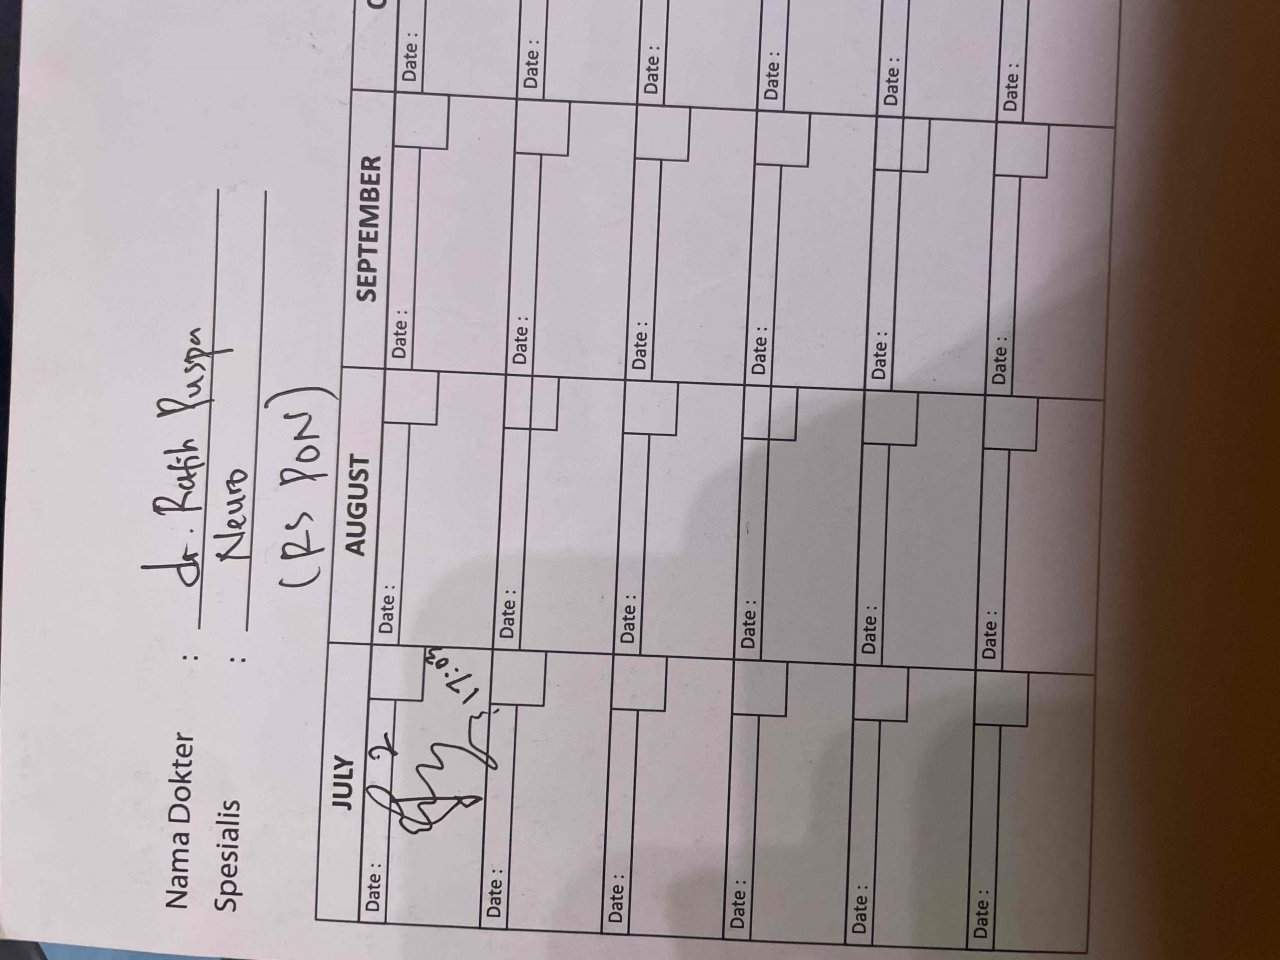 Nama Dokter : dr. Ratih Puspa
Spesialis : Neuro
(RS PON)
JULY AUGUST SEPTEMBER
Date : 2 Date : Date : Date :
17:04
Date : Date : Date : Date :
Date : Date : Date : Date :
Date : Date : Date : Date :
Date : Date : Date : Date :
Date : Date : Date : Date :